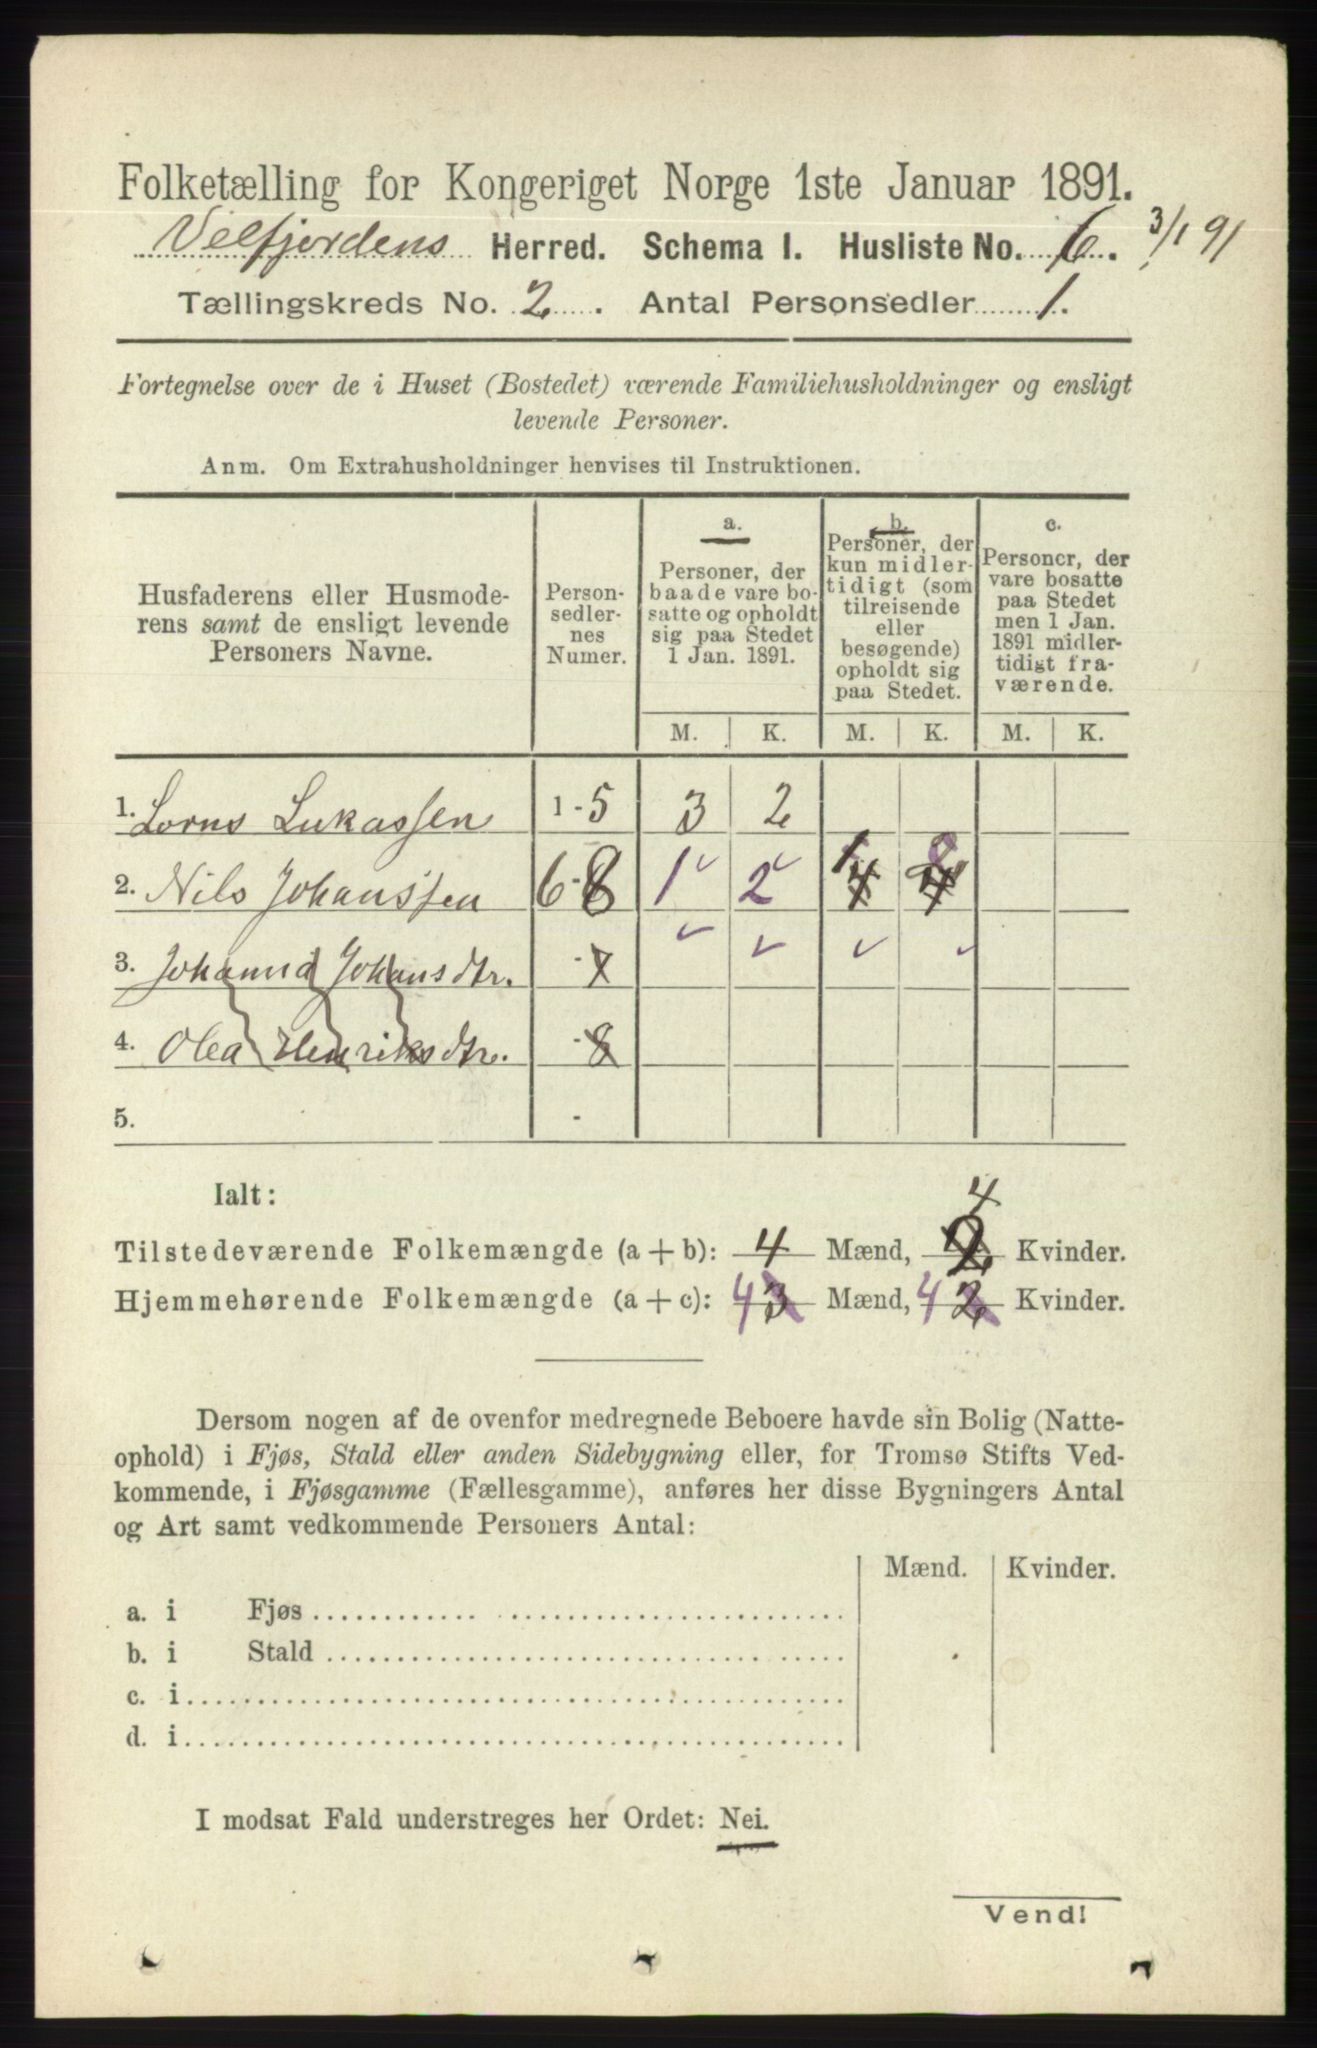 Folketælling for Kongeriget Norge 1ste Januar 1891.
Velfjordens Herred. Schema I. Husliste No. 6. 3/1 91
Tællingskreds No. 2. Antal Personsedler 1.
Fortegnelse over de i Huset (Bostedet) værende Familiehusholdninger og ensligt
levende Personer.
Anm. Om Extrahusholdninger henvises til Instruktionen.
Husfaderens eller Husmode-
rens samt de ensligt levende
Personers Navne.
Person-
sedler-
nes
Numer.
a.
Personer, der
baade vare bo-
satte og opholdt
sig paa Stedet
1 Jan. 1891.
b.
Personer, der
kun midler-
tidigt (som
tilreisende
eller
besøgende)
opholdt sig
paa Stedet.
c.
Personer, der
vare bosatte
paa Stedet
men 1 Jan.
1891 midler-
tidigt fra-
værende.
M. K. M. K. M. K.
1. Lorns Lukassen 1-5 3 2
2. Nils Johanssen 6-8 1 2
3. Johanna Johansdtr. -7
4. Olea Henriksdtr. -8
5. -
Ialt:
4
Tilstedeværende Folkemængde (a + b): 4 Mænd, 2 Kvinder.
Hjemmehørende Folkemængde (a + c): 4 3 Mænd, 4 2 Kvinder.
Dersom nogen af de ovenfor medregnede Beboere havde sin Bolig (Natte-
ophold) i Fjøs, Stald eller anden Sidebygning eller, for Tromsø Stifts Ved-
kommende, i Fjøsgamme (Fællesgamme), anføres her disse Bygningers Antal
og Art samt vedkommende Personers Antal:
Mænd. Kvinder.
a. i Fjøs
b. i Stald
c. i
d. i
I modsat Fald understreges her Ordet: Nei.
Vend!